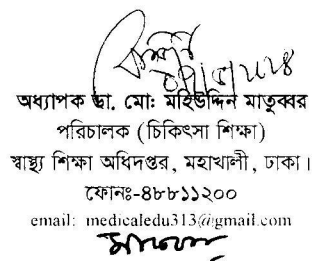 অধ্যাপক ডা. মো: মহিউদ্দিন মাতুব্বর
পরিচালক (চিকিৎসা শিক্ষা)
স্বাস্থ্য শিক্ষা অধিদপ্তর, মহাখালী, ঢাকা।
ফোনঃ-৪৮৮১১২০০
email: medicaledu313@gmail.com